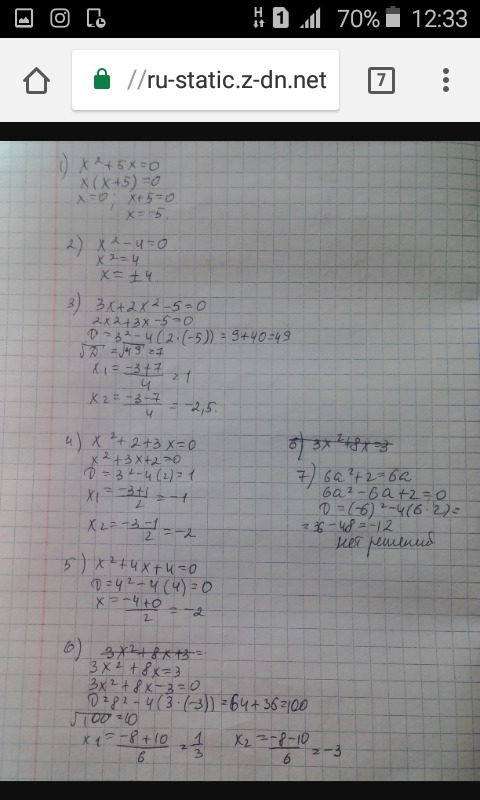 H 1 70% 12:33
//ru-static.z-dn.net 7
1) x²+5x=0
x(x+5)=0
x=0; x+5=0
x=-5.
2) x²-4=0
x²=4
x=±4
3) 3x+2x²-5=0
2x²+3x-5=0
D=3²-4(2·(-5))=9+40=49
√D=√49=7
x1=-3+7/4=1
x2=-3-7/4=-2,5.
4) x²+2+3x=0
x²+3x+2=0
D=3²-4(2)=1
x1=-3+1/2=-1
x2=-3-1/2=-2
5) x²+4x+4=0
D=4²-4(4)=0
x=-4+0/2=-2
6) 3x²+8x+3=
3x²+8x=3
3x²+8x-3=0
D=8²-4(3·(-3))=64+36=100
√100=10
x1=-8+10/6=1/3 x2=-8-10/6=-3
6) 3x²+8x=3
7) 6a²+2=6a
6a²-6a+2=0
D=(-6)²-4(6·2)=
=36-48=-12
нет решений